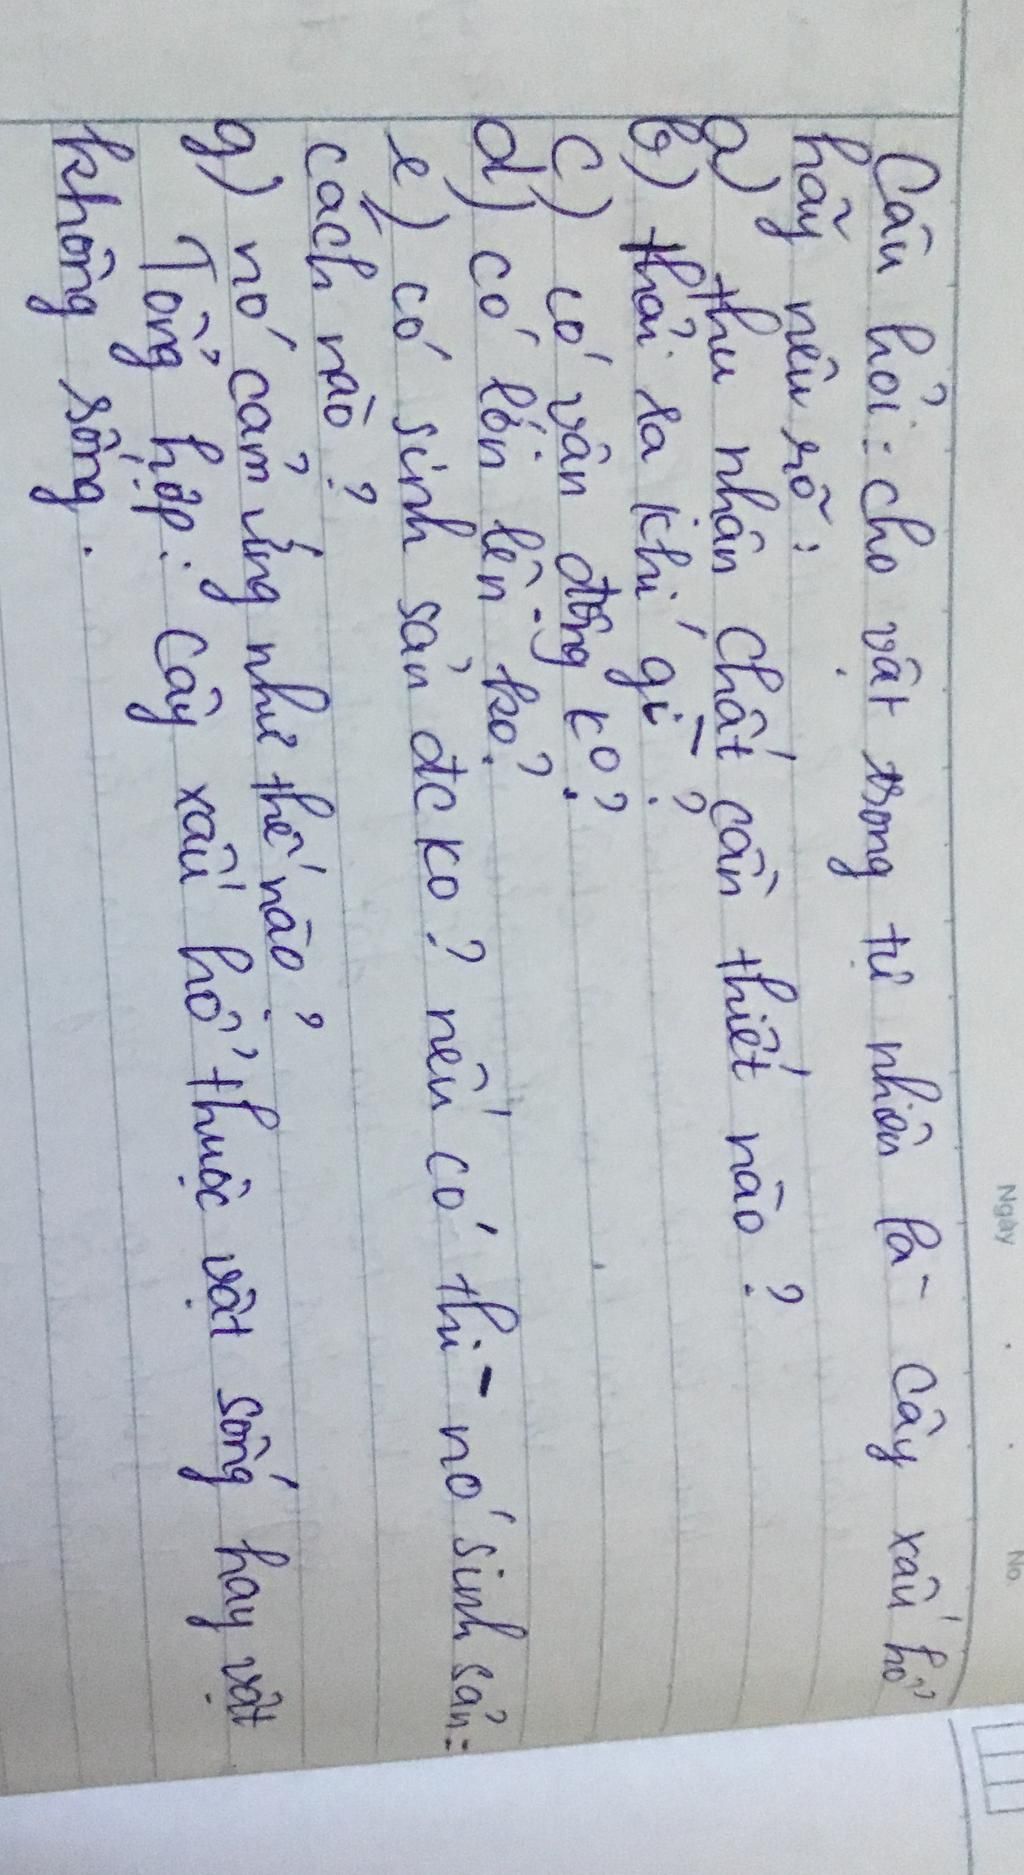 Ngày
No.
Câu hỏi: cho vật trong tự nhiên là cây xấu hổ
hãy nêu rõ:
a) thu nhân chất cần thiết nào?
b) thải ra khí gì?
c) có vân động ko?
d) có lớn lên ko?
e) có sinh sản đc ko? nếu có thì nó sinh sản=
cách nào?
g) nó cảm ứng như thế nào?
Tổng hợp: Cây xấu hổ thuộc vật sống hay vật
không sống.